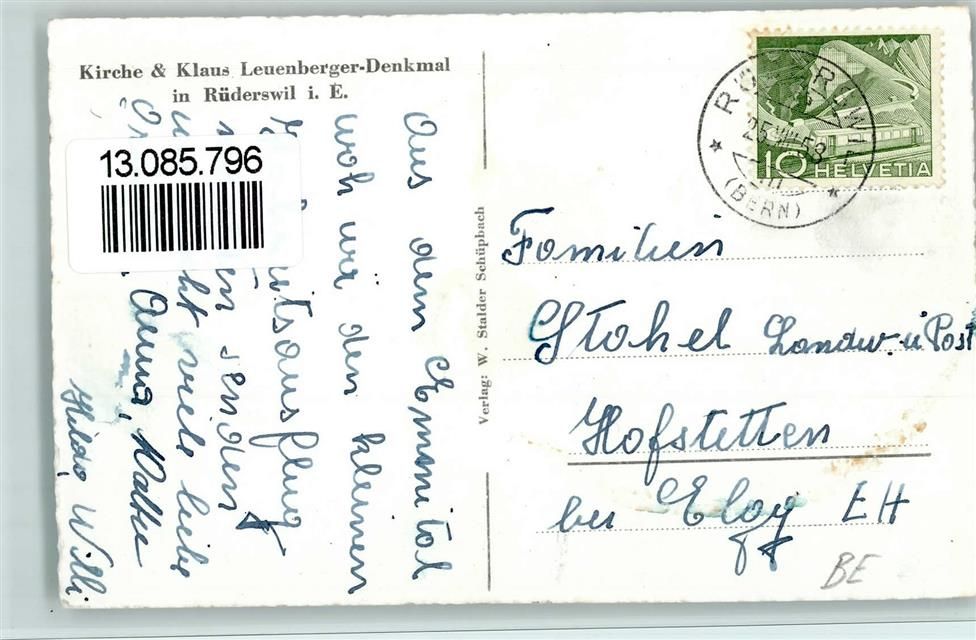 Kirche & Klaus Leuenberger-Denkmal
in Rüderswil i. E.
13.085.796
Aus dem Emmital
woh wir den kleinen
senden
viele liebe
Anna, Walte
Hilda, Willi.
Verlag: W. Stalder Schüpbach
25.VIII.58
(BERN)
10 HELVETIA
Familien
Stahel Landw. u Post
Hofstetten
bei Elgg ZH
BE